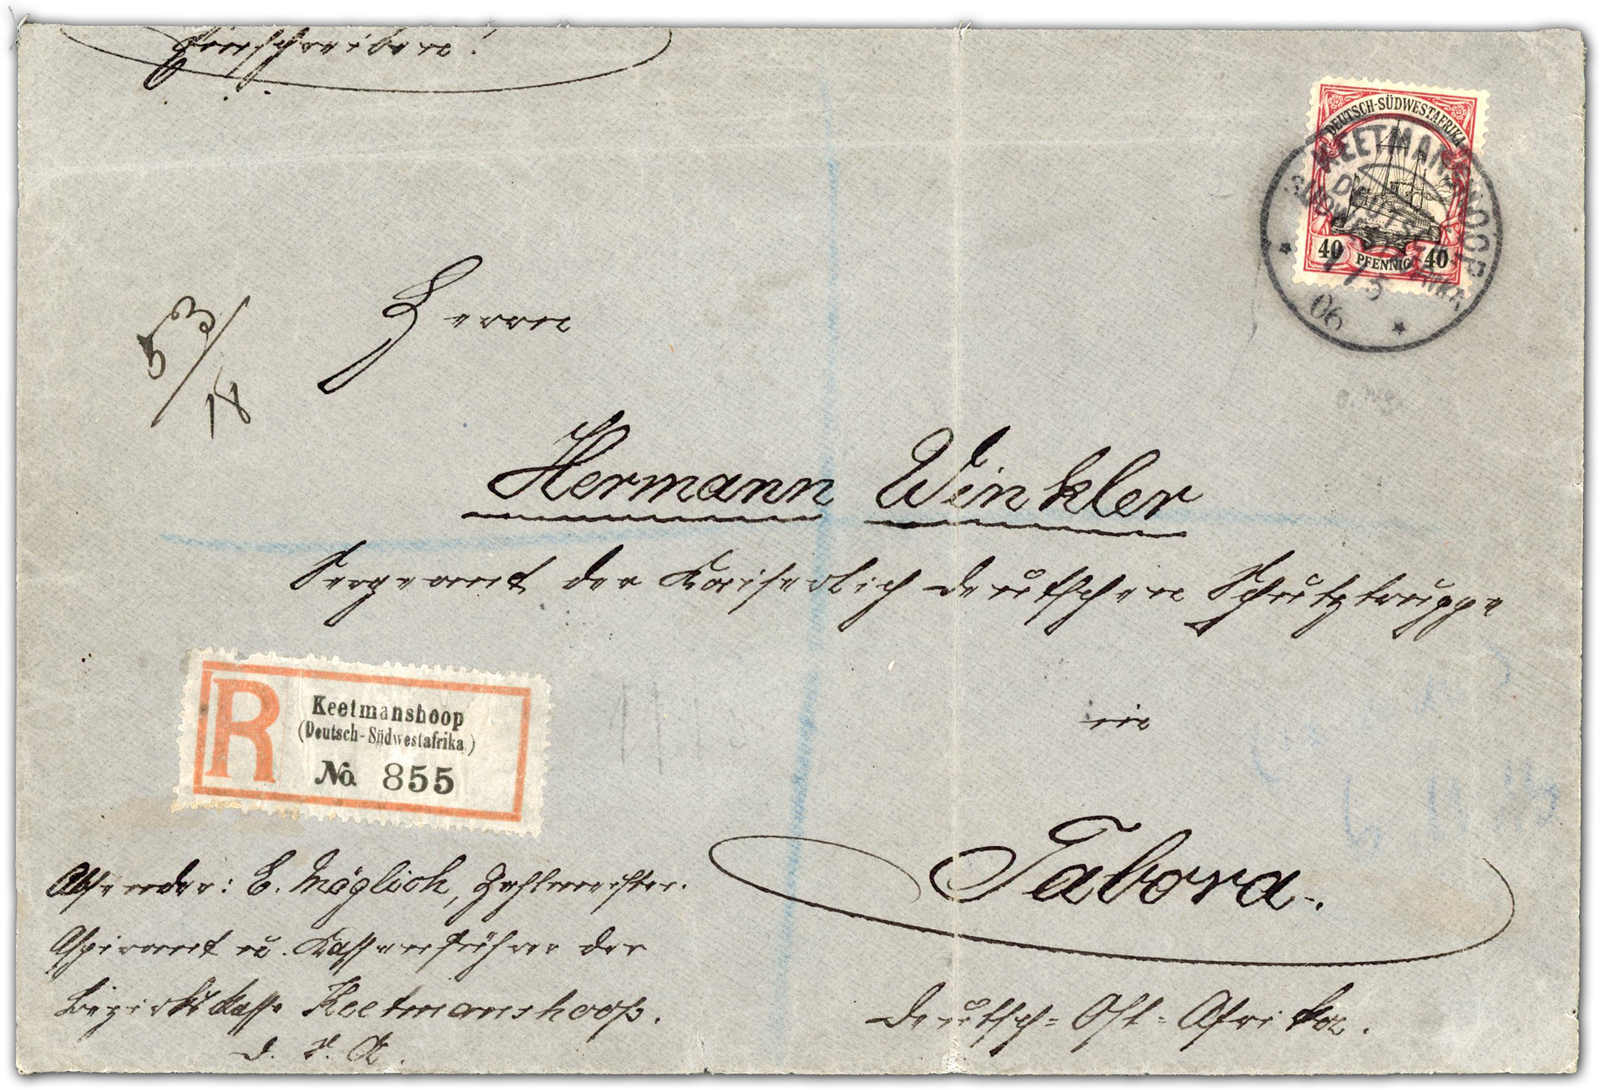 Einschreiben!
DEUTSCH-SÜDWESTAFRIKA
40 PFENNIG 40
KEETMANSHOOP
DEUTSCH-
SÜDWESTAFRIKA
06
53/18
Herrn
Hermann Winkler
Sergeant der Kaiserlich deutschen Schutztruppe
in
Tabora.
Deutsch-Ost-Afrika.
R
Keetmanshoop
(Deutsch-Südwestafrika)
No. 855
Absender: E. Möglich, Zahlmeister-
Aspirant u. Kassenführer der
Bezirkskasse Keetmanshoop.